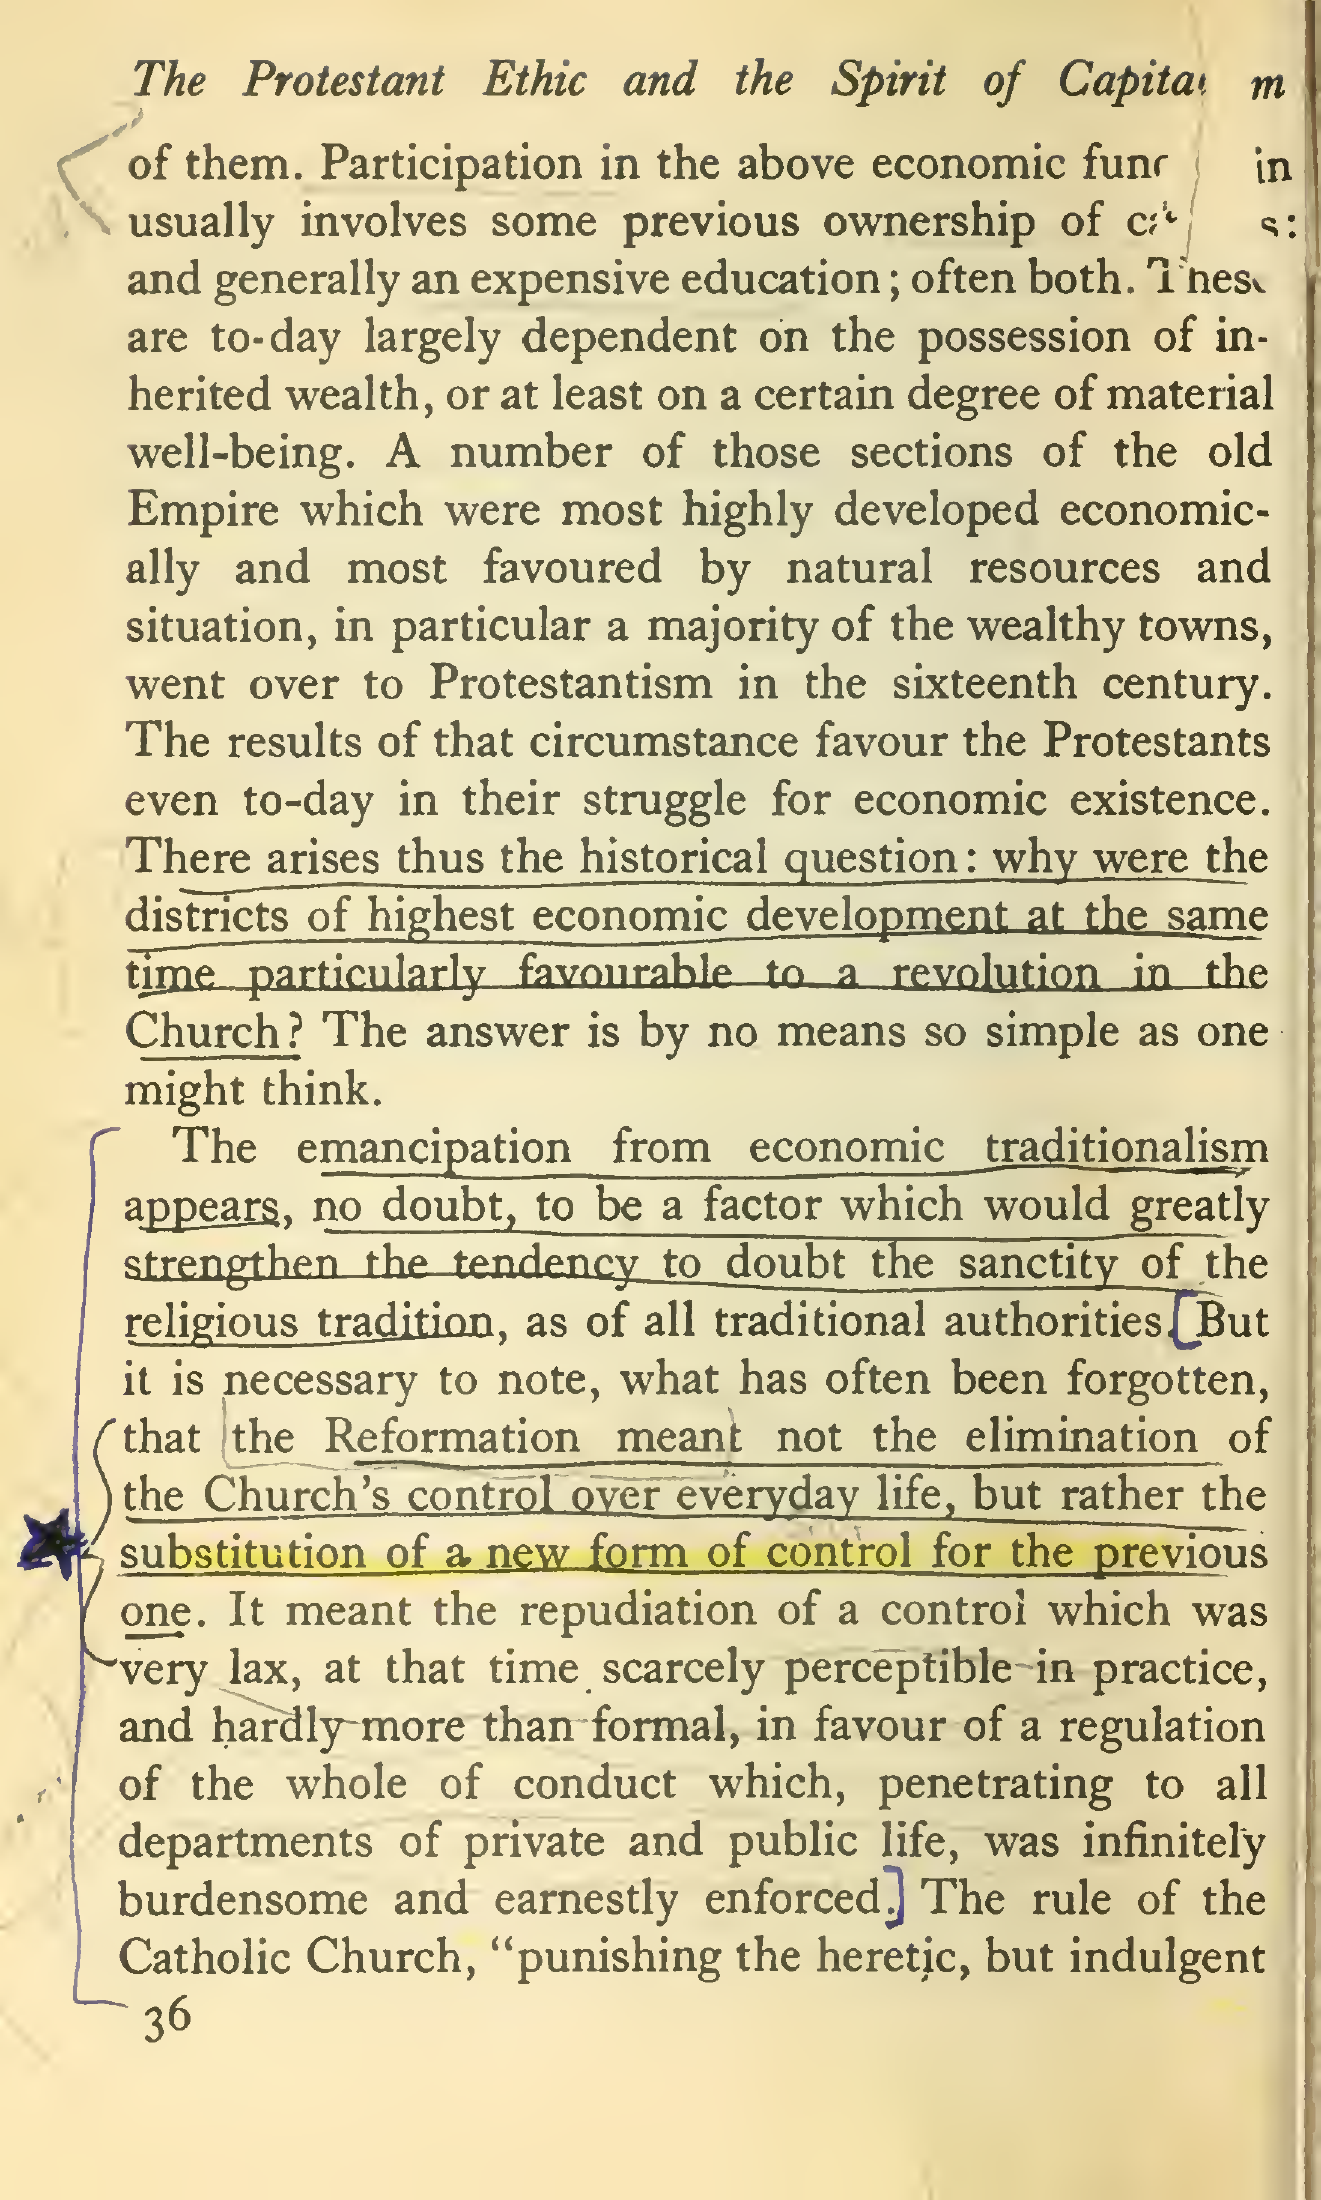 The Protestant Ethic and the Spirit of
of them. Participation in the above economic
usually involves some previous ownership of
and generally an expensive education; often both.
are to-day largely dependent on the possession of in-
herited wealth, or at least on a certain degree of material
well-being. A number of those sections of the old
Empire which were most highly developed economic-
ally and most favoured by natural resources and
situation, in particular a majority of the wealthy towns,
went over to Protestantism in the sixteenth century.
The results of that circumstance favour the Protestants
even to-day in their struggle for economic existence.
There arises thus the historical question: why were the
districts of highest economic development at the same
time particularly favourable to a revolution in the
Church? The answer is by no means so simple as one
might think.
The emancipation from economic traditionalism
appears, no doubt, to be a factor which would greatly
strengthen the tendency to doubt the sanctity of the
religious tradition, as of all traditional authorities. [But
it is necessary to note, what has often been forgotten,
that the Reformation meant not the elimination of
the Church's control over everyday life, but rather the
substitution of a new form of control for the previous
one. It meant the repudiation of a control which was
very lax, at that time scarcely perceptible in practice,
and hardly more than formal, in favour of a regulation
of the whole of conduct which, penetrating to all
departments of private and public life, was infinitely
burdensome and earnestly enforced.] The rule of the
Catholic Church, "punishing the heretic, but indulgent
36